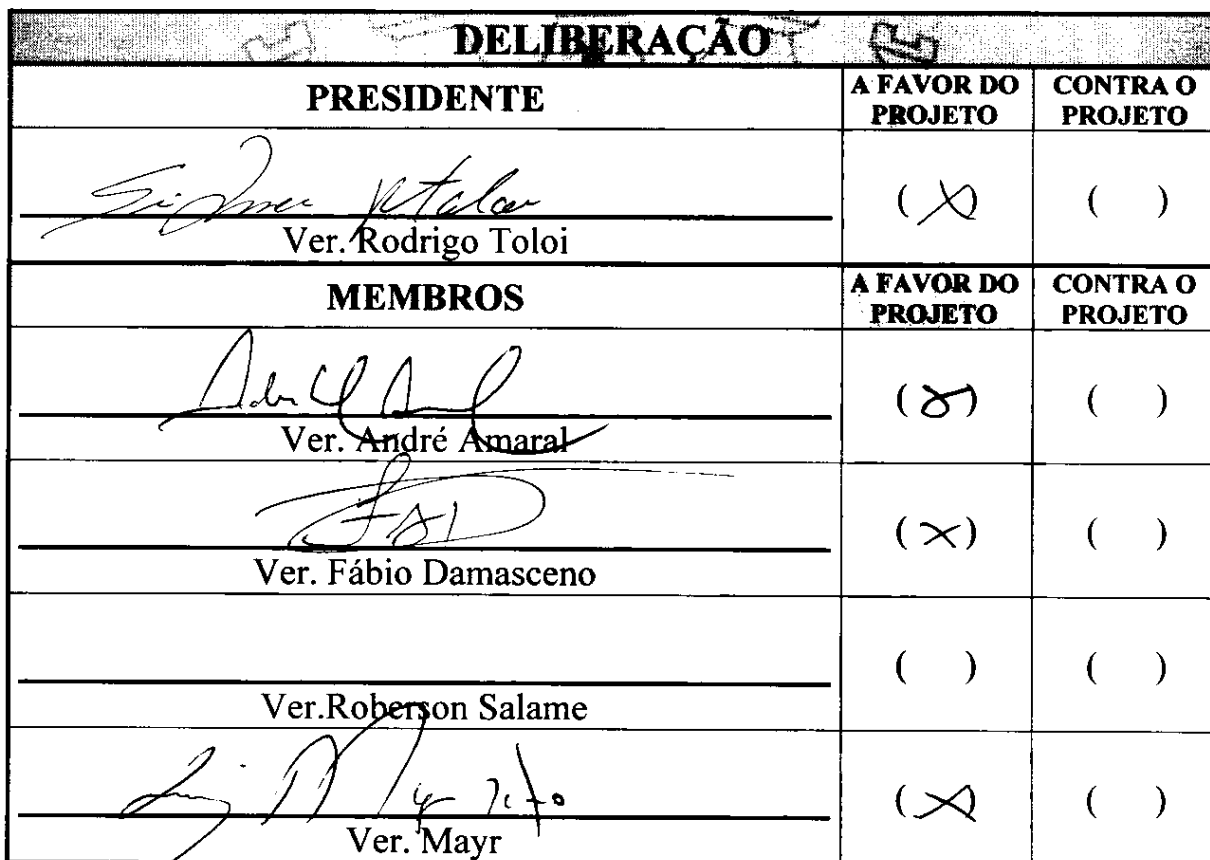 DELIBERAÇÃO
PRESIDENTE
A FAVOR DO PROJETO
CONTRA O PROJETO
( X )
( )
Ver. Rodrigo Toloi
MEMBROS
A FAVOR DO PROJETO
CONTRA O PROJETO
( X )
( )
Ver. André Amaral
( X )
( )
Ver. Fábio Damasceno
( )
( )
Ver.Roberson Salame
( X )
( )
Ver. Mayr